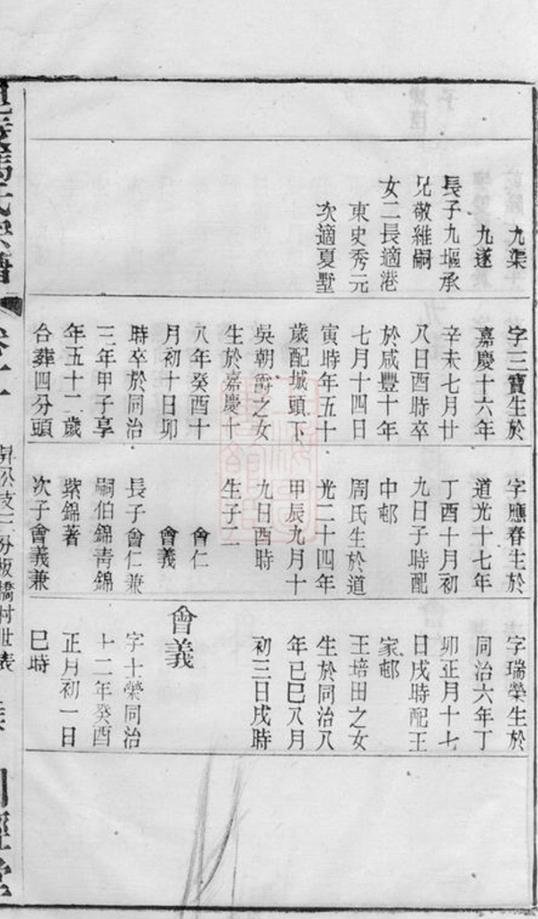 九渠
九遂
長子九堰承
兄敬維嗣
女二長適港
東史秀元
次適夏墅
字三寶生於
嘉慶十六年
辛未七月廿
八日酉時卒
於咸豐十年
七月十四日
寅時年五十
歲配城頭下
吳朝壽之女
生於嘉慶十
八年癸酉十
月初十日卯
時卒於同治
三年甲子享
年五十二歲
合葬四分頭
字應春生於
道光十七年
丁酉十月初
九日子時配
中邨
周氏生於道
光二十四年
甲辰九月十
九日酉時
生子二
會仁
會義
長子會仁兼
嗣伯錦靑錦
紫錦著
次子會義兼
字瑞榮生於
同治六年丁
卯正月十七
日戌時配王
家邨
王培田之女
生於同治八
年己巳八月
初三日戌時
會義
字士榮同治
十二年癸酉
正月初一日
巳時
氏宗譜
卷十
公支三分板橋村世表